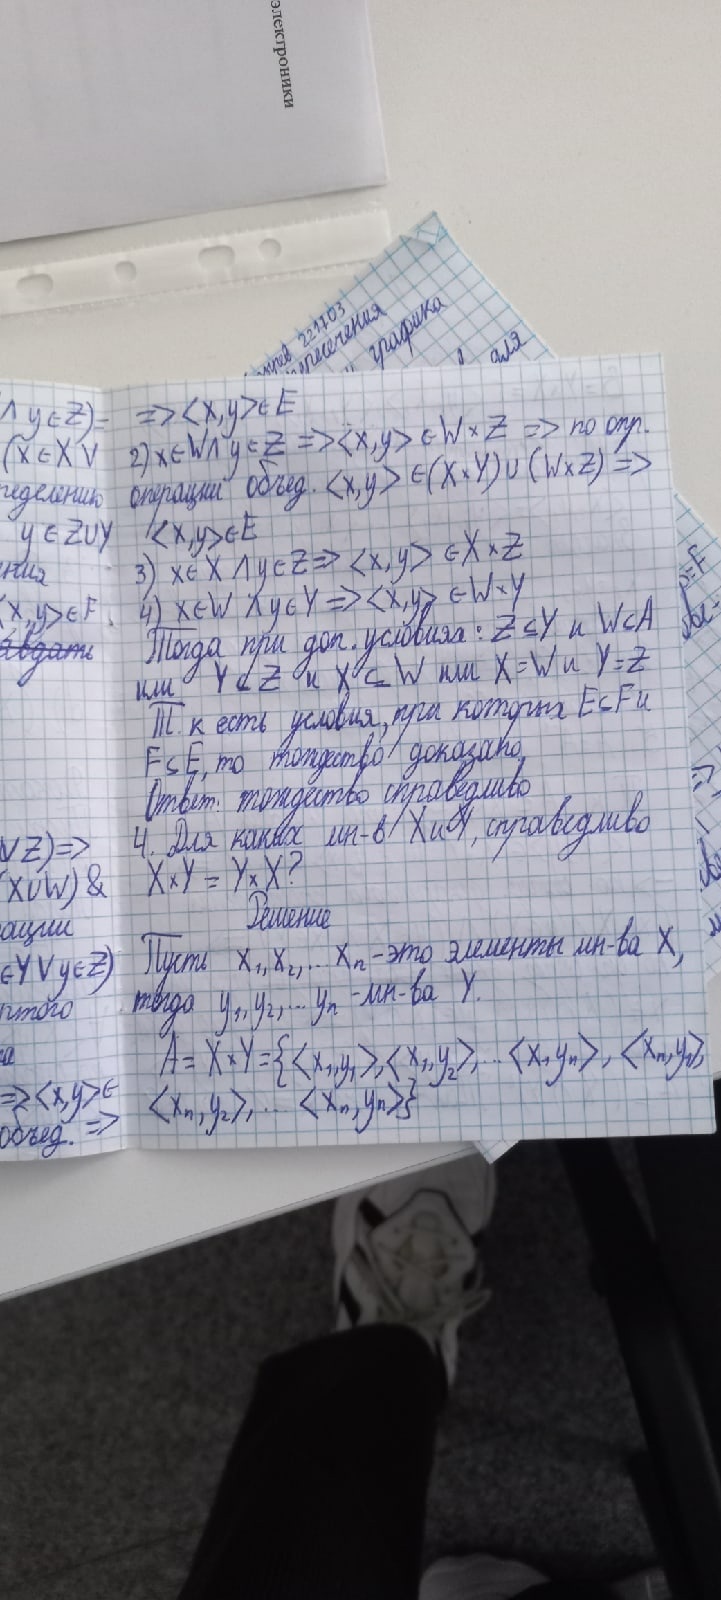 электроники
221703
пересечения
графика
для
∧ y∈Z)=
(x∈X ∨
y∈Z∪Y
<x,y>∈F.
∨Z)=>
(X∪W) &
∈Y∨y∈Z)
=><x,y>∈
объед. =>
=><x,y>∈E
2) x∈W∧y∈Z =><x,y> ∈W×Z => по опр.
операции объед. <x,y> ∈(X×Y)∪(W×Z) =>
<x,y>∈E
3) x∈X ∧y∈Z=> <x,y> ∈X×Z
4) x∈W ∧y∈Y =><x,y> ∈W×Y
Тогда при доп. условиях: Z⊆Y и W⊂A
или Y⊂Z и X⊆W или X=W и Y=Z
Т. к есть условия, при которых E⊆F и
F⊆E, то тождество доказано
Ответ: тождество справедливо
4. Для каких мн-в X и Y, справедливо
X×Y = Y×X?
Решение
Пусть x₁, x₂, ... xₙ -это элементы мн-ва X,
тогда y₁, y₂, ... yₙ -мн-ва Y.
A= X×Y={<x₁,y₁>,<x₁,y₂>,...<x₁,yₙ>, <xₙ,y₁>,
<xₙ,y₂>, ... <xₙ,yₙ>}